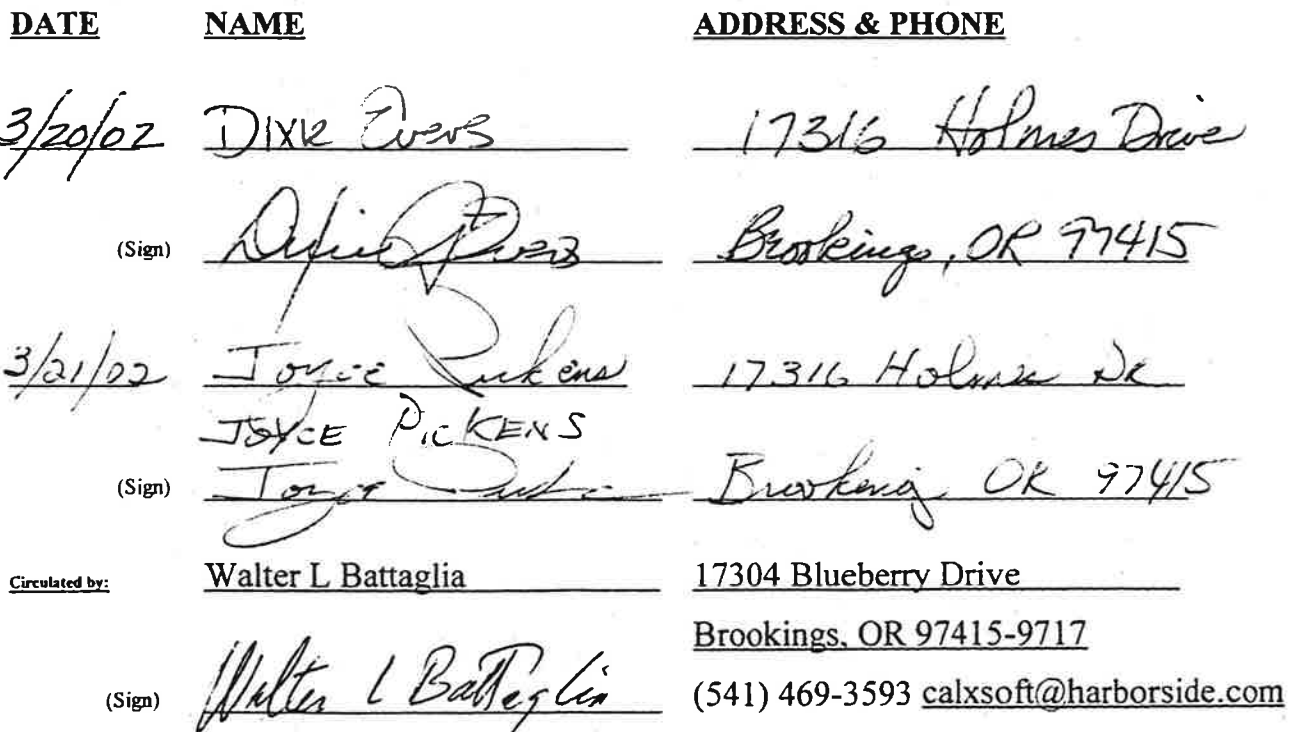 DATE NAME ADDRESS & PHONE
3/20/02 Dixie Evers 17316 Holmes Drive
(Sign) Dixie Evers Brookings, OR 97415
3/21/02 Joyce Pickens 17316 Holmes Dr
JOYCE PICKENS
(Sign) Joyce Brookings OR 97415
Circulated by: Walter L Battaglia 17304 Blueberry Drive
Brookings, OR 97415-9717
(Sign) Walter L Battaglia (541) 469-3593 calxsoft@harborside.com